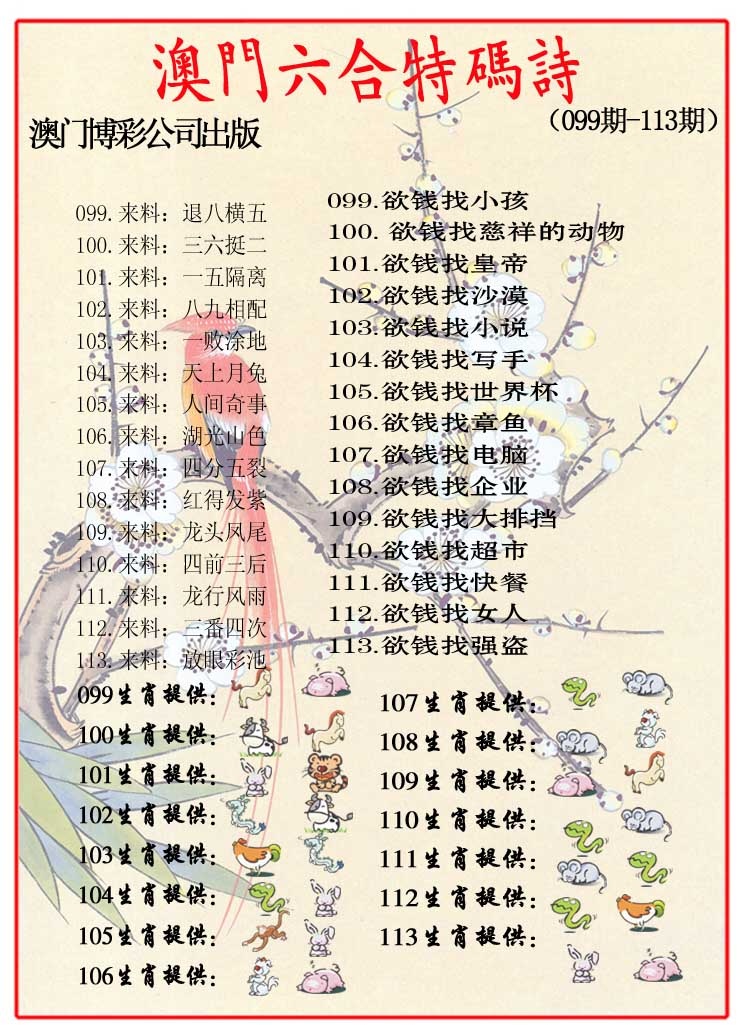 澳門六合特碼詩
澳门博彩公司出版
（099期-113期）
099.来料：退八横五
100.来料：三六挺二
101.来料：一五隔离
102.来料：八九相配
103.来料：一败涂地
104.来料：天上月兔
105.来料：人间奇事
106.来料：湖光山色
107.来料：四分五裂
108.来料：红得发紫
109.来料：龙头风尾
110.来料：四前三后
111.来料：龙行风雨
112.来料：三番四次
113.来料：放眼彩池
099.欲钱找小孩
100. 欲钱找慈祥的动物
101.欲钱找皇帝
102.欲钱找沙漠
103.欲钱找小说
104.欲钱找写手
105.欲钱找世界杯
106.欲钱找章鱼
107.欲钱找电脑
108.欲钱找企业
109.欲钱找大排挡
110.欲钱找超市
111.欲钱找快餐
112.欲钱找女人
113.欲钱找强盗
099生肖提供：
100生肖提供：
101生肖提供：
102生肖提供：
103生肖提供：
104生肖提供：
105生肖提供：
106生肖提供：
107生肖提供：
108生肖提供：
109生肖提供：
110生肖提供：
111生肖提供：
112生肖提供：
113生肖提供：